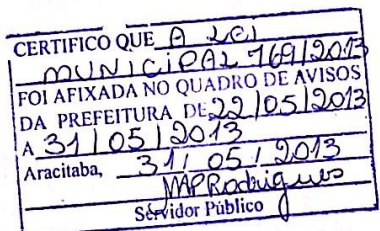 CERTIFICO QUE A Lei
MUNICIPAL 769/2013
FOI AFIXADA NO QUADRO DE AVISOS
DA PREFEITURA DE 22/05/2013
A 31/05/2013
Aracitaba, 31/05/2013
MAPRodrigues
Servidor Público